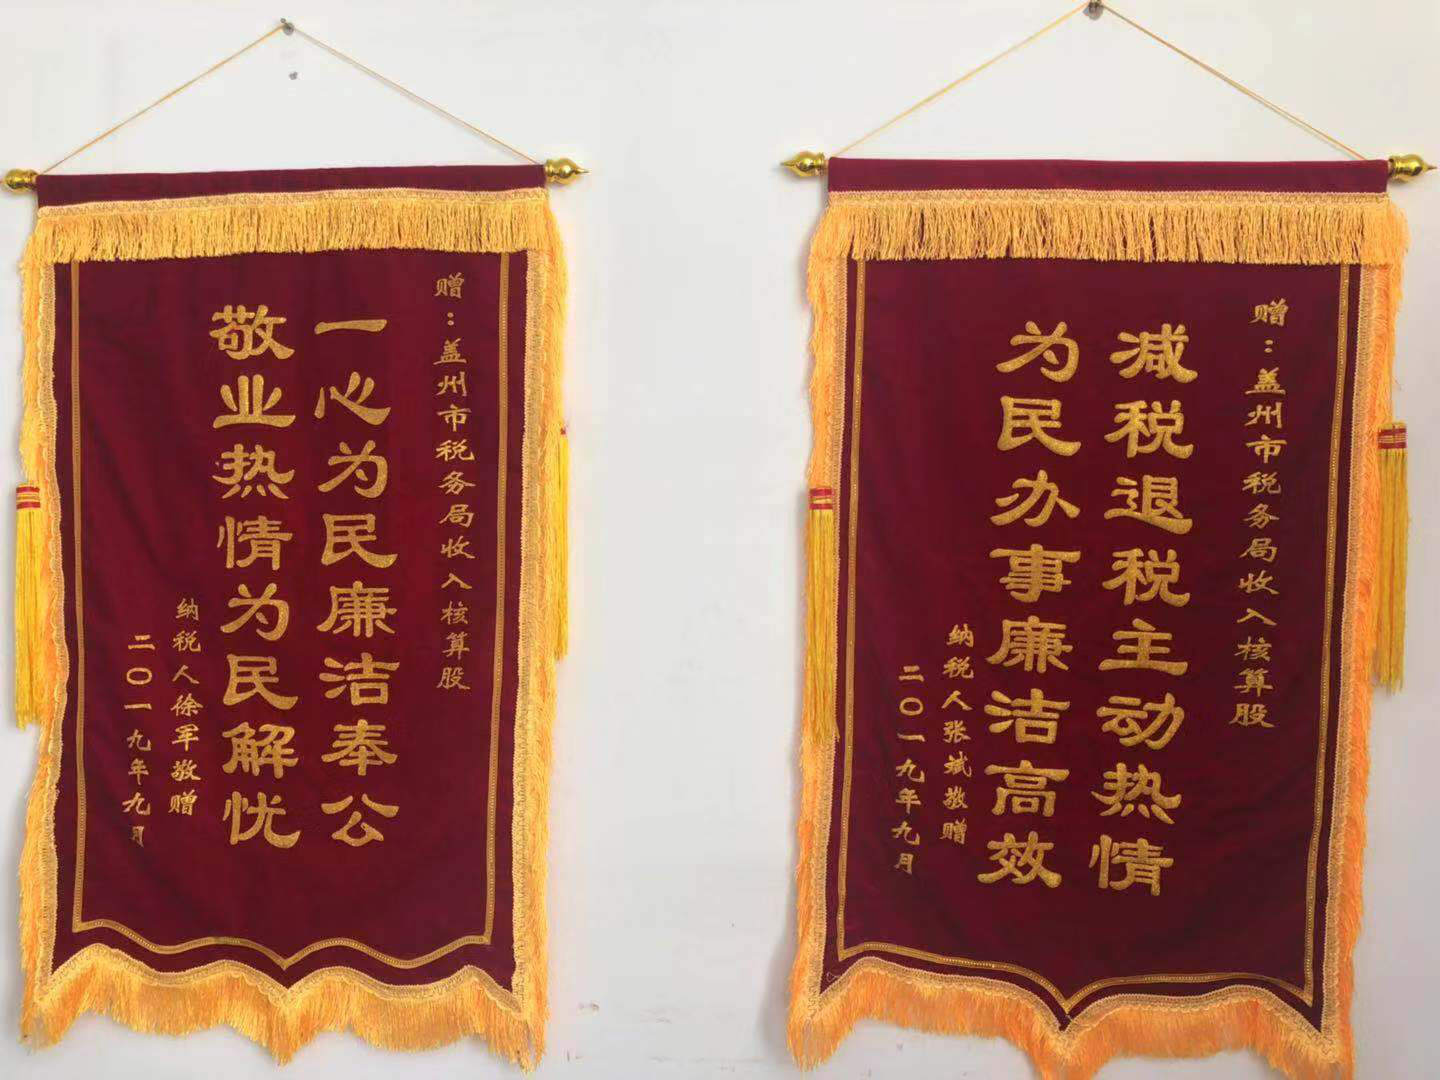 赠：盖州市税务局收入核算股
一心为民廉洁奉公
敬业热情为民解忧
纳税人徐军敬赠
二〇一九年九月
赠：盖州市税务局收入核算股
减税退税主动热情
为民办事廉洁高效
纳税人张斌敬赠
二〇一九年九月